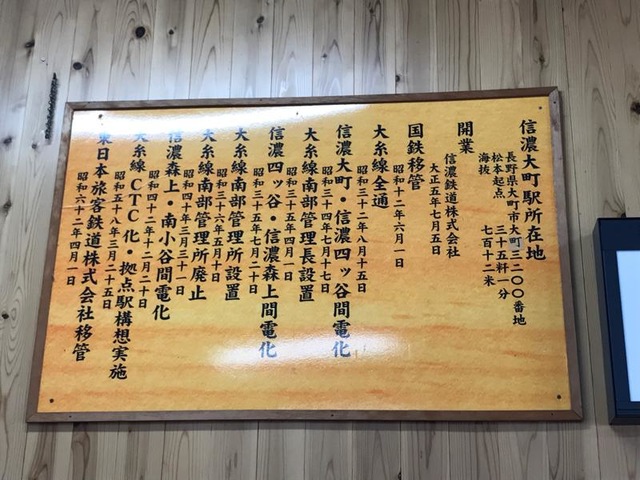 信濃大町駅所在地
長野県大町市大町三二〇〇番地
松本起点　三十五粁一分
海抜　七百十二米
開業
信濃鉄道株式会社
大正五年七月五日
国鉄移管
昭和十二年六月一日
大糸線全通
昭和三十二年八月十五日
信濃大町・信濃四ッ谷間電化
昭和三十四年七月十七日
大糸線南部管理長設置
昭和三十五年四月一日
信濃四ッ谷・信濃森上間電化
昭和三十五年七月二十日
大糸線南部管理所設置
昭和三十六年五月十日
大糸線南部管理所廃止
昭和四十年三月三十一日
信濃森上・南小谷間電化
昭和四十二年十二月二十日
大糸線CTC化・拠点駅構想実施
昭和五十八年三月二十五日
東日本旅客鉄道株式会社移管
昭和六十二年四月一日